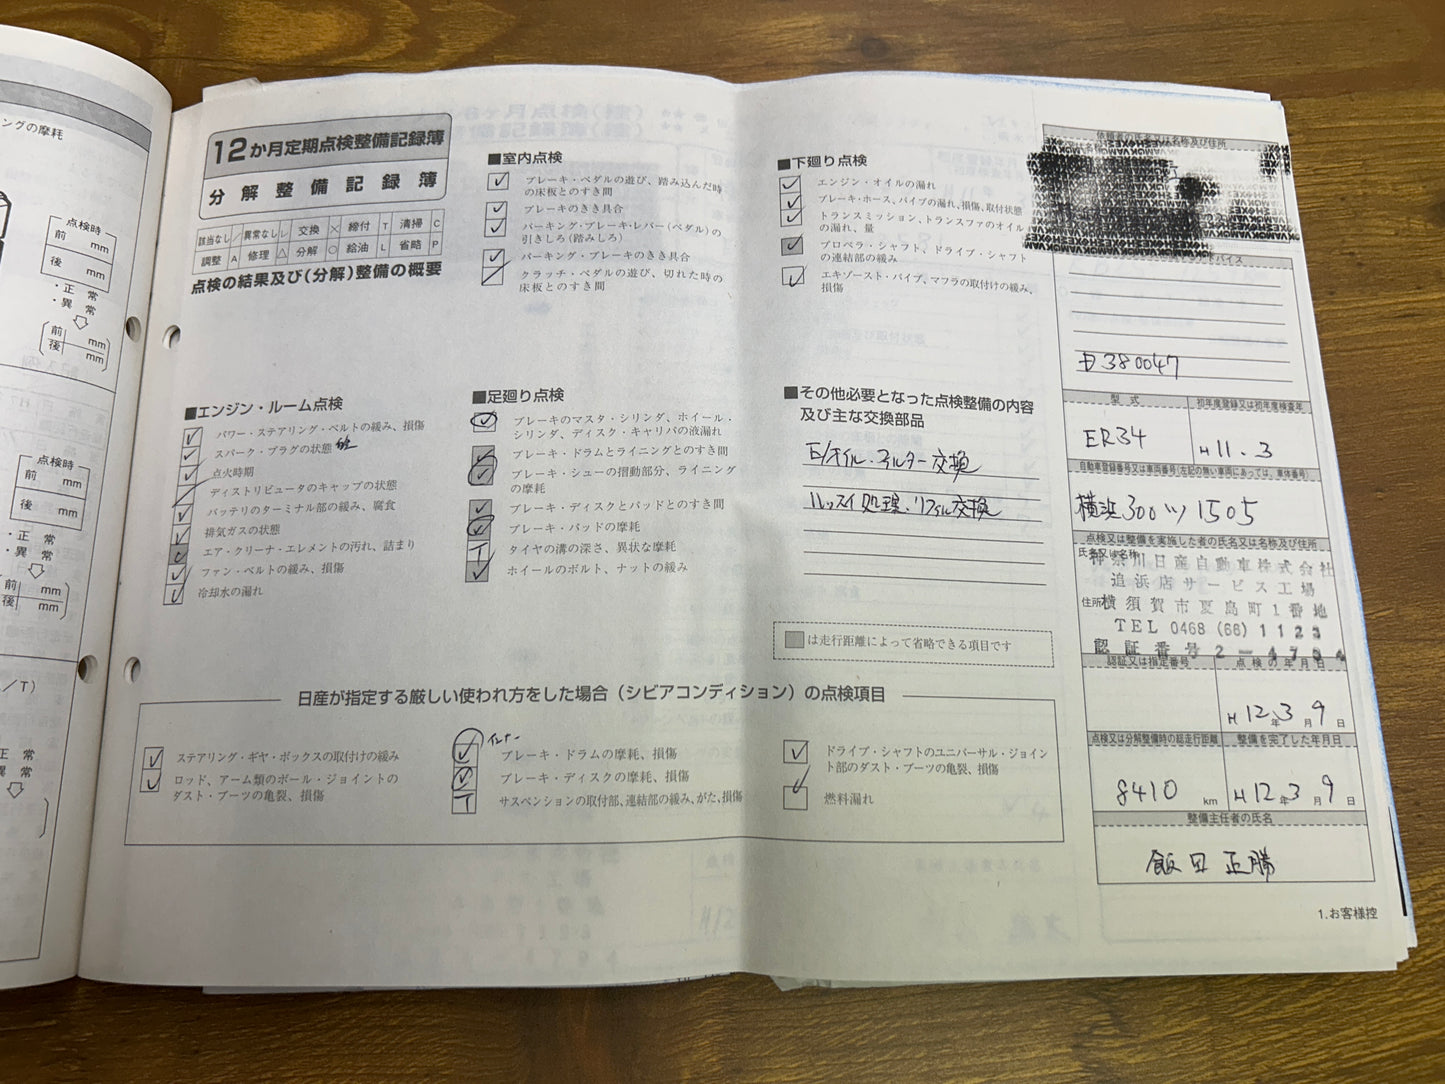 ングの摩耗
点検時
前 mm
後 mm
・正 常
・異 常
前 mm
後 mm
点検時
前 mm
後 mm
・正 常
・異 常
前 mm
後 mm
/T)
正 常
異 常
12か月定期点検整備記録簿
分解整備記録簿
該当なし / 異常なし レ 交換 × 締付 T 清掃 C
調整 A 修理 △ 分解 ○ 給油 L 省略 P
点検の結果及び(分解)整備の概要
■室内点検
ブレーキ・ペダルの遊び、踏み込んだ時
の床板とのすき間
ブレーキのきき具合
パーキング・ブレーキ・レバー(ペダル)の
引きしろ(踏みしろ)
パーキング・ブレーキのきき具合
クラッチ・ペダルの遊び、切れた時の
床板とのすき間
■下廻り点検
エンジン・オイルの漏れ
ブレーキ・ホース、パイプの漏れ、損傷、取付状態
トランスミッション、トランスファのオイル
の漏れ、量
プロペラ・シャフト、ドライブ・シャフト
の連結部の緩み
エキゾースト・パイプ、マフラの取付けの緩み、
損傷
■エンジン・ルーム点検
パワー・ステアリング・ベルトの緩み、損傷
スパーク・プラグの状態
点火時期
ディストリビュータのキャップの状態
バッテリのターミナル部の緩み、腐食
排気ガスの状態
エア・クリーナ・エレメントの汚れ、詰まり
ファン・ベルトの緩み、損傷
冷却水の漏れ
■足廻り点検
ブレーキのマスタ・シリンダ、ホイール・
シリンダ、ディスク・キャリパの液漏れ
ブレーキ・ドラムとライニングとのすき間
ブレーキ・シューの摺動部分、ライニング
の摩耗
ブレーキ・ディスクとパッドとのすき間
ブレーキ・パッドの摩耗
T タイヤの溝の深さ、異状な摩耗
ホイールのボルト、ナットの緩み
■その他必要となった点検整備の内容
及び主な交換部品
E/オイル・フィルター交換
処理・リフィル交換
は走行距離によって省略できる項目です
日産が指定する厳しい使われ方をした場合(シビアコンディション)の点検項目
ステアリング・ギヤ・ボックスの取付けの緩み
ロッド、アーム類のボール・ジョイントの
ダスト・ブーツの亀裂、損傷
インナー
ブレーキ・ドラムの摩耗、損傷
ブレーキ・ディスクの摩耗、損傷
T サスペンションの取付部、連結部の緩み、がた、損傷
ドライブ・シャフトのユニバーサル・ジョイン
ト部のダスト・ブーツの亀裂、損傷
燃料漏れ
依頼者の氏名又は名称及び住所
バイス
380047
型 式
初年度登録又は初年度検査年
ER34
H11.3
自動車登録番号又は車両番号(左記の無い車両にあっては、車体番号)
横浜300ツ1505
点検又は整備を実施した者の氏名又は名称及び住所
氏名又は名称
神奈川日産自動車株式会社
追浜店サービス工場
住所 横須賀市夏島町1番地
TEL 0468 (66) 1123
認証番号 2-4734
認証又は指定番号
点検の年月日
H12年3月9日
点検又は分解整備時の総走行距離
整備を完了した年月日
8410 km
H12年3月9日
整備主任者の氏名
飯田 正勝
1.お客様控